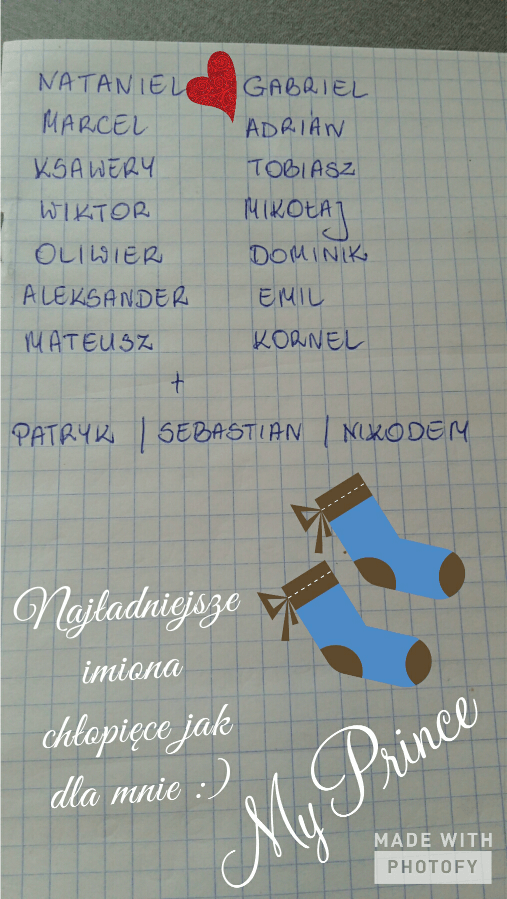 NATANIEL GABRIEL
MARCEL ADRIAN
KSAWERY TOBIASZ
WIKTOR MIKOŁAJ
OLIWIER DOMINIK
ALEKSANDER EMIL
MATEUSZ KORNEL
+
PATRYK | SEBASTIAN | NIKODEM
Najładniejsze
imiona
chłopięce jak
dla mnie :)
My Prince
MADE WITH
PHOTOFY